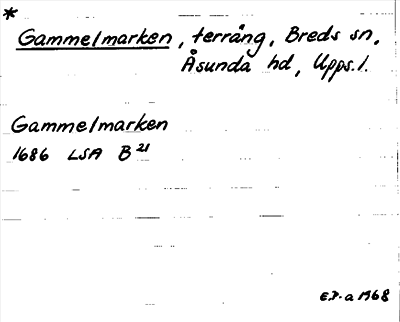 *
Gammelmarken, terräng, Breds sn,
Åsunda hd, Upps.l.
Gammelmarken
1686 LSA B 21
E.P. a 1968